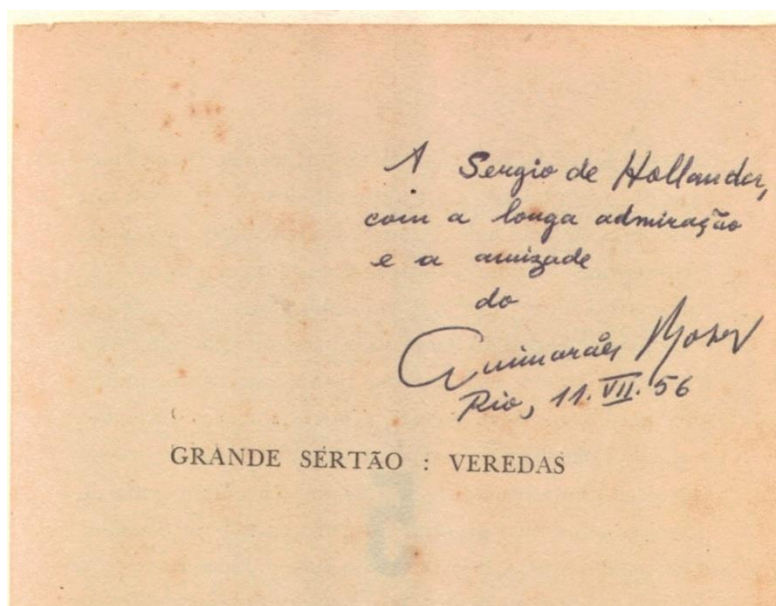 A Sergio de Hollanda,
com a longa admiração
e a amizade
do
Guimarães Rosa
Rio, 11. VII. 56
GRANDE SERTÃO : VEREDAS